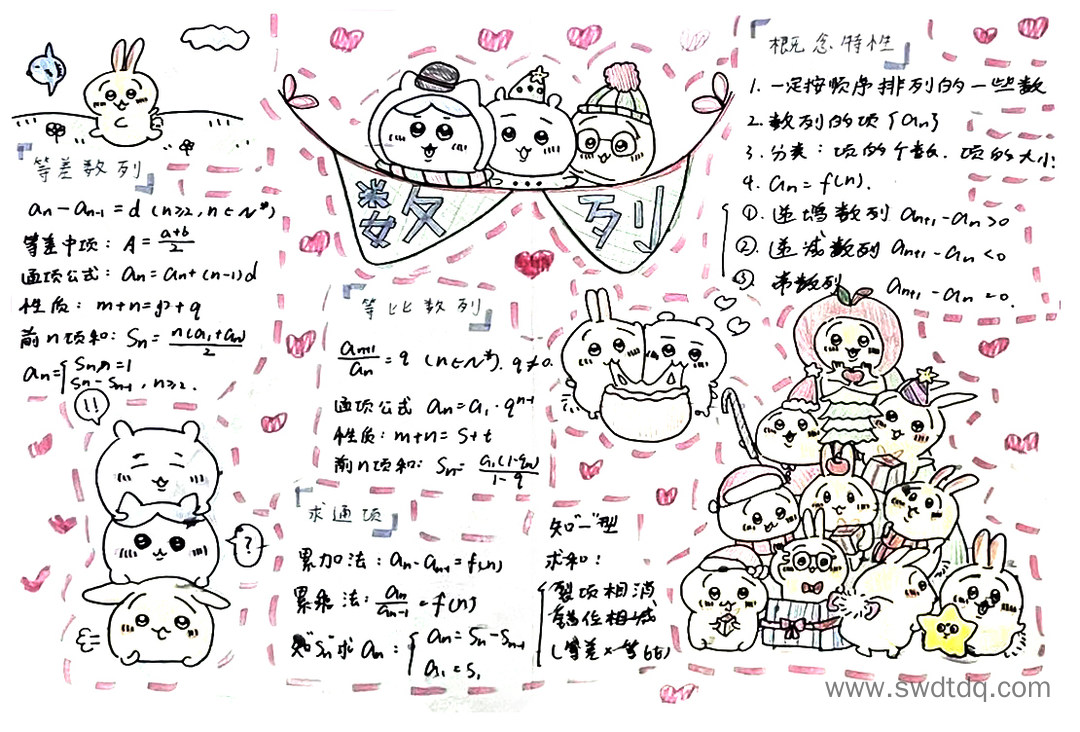 数列
等差数列
an-an-1=d (n≥2, n∈N*)
等差中项: A=a+b/2
通项公式: an=an+(n-1)d
性质: m+n=p+q
前n项和: Sn=n(a1+an)/2
an={Sn,n=1
Sn-Sn-1, n≥2.
!!
?
等比数列
an+1/an=q (n∈N*). q≠0.
通项公式 an=a1·qn-1
性质: m+n=s+t
前n项和: Sn=a1(1-qn)/1-q
求通项
累加法: an-an-1=f(n)
累乘法: an/an-1=f(n)
知"Sn"求an: {an=Sn-Sn-1
a1=S1
知"-"型
求和:
裂项相消
错位相减
(等差×等比)
概念特性
1. 一定按顺序排列的一些数
2. 数列的项{an}
3. 分类: 项的个数. 项的大小:
4. an=f(n).
①. 递增数列 an+1-an>0
②. 递减数列 an+1-an<0
③. 常数列 an+1-an=0.
www.swdtdq.com